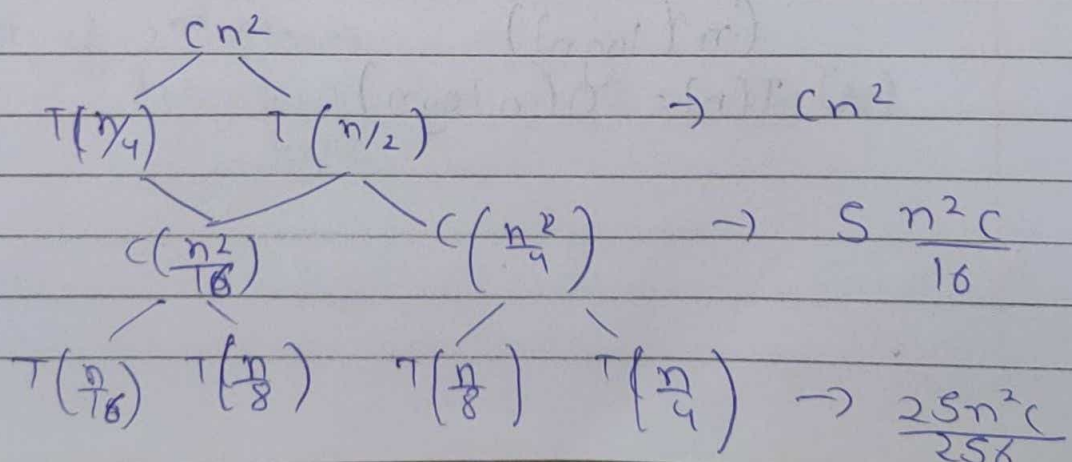 Cn²
T(n/4) T(n/2) → Cn²
C(n²/16) C(n²/4) → 5 n²C/16
T(n/16) T(n/8) T(n/8) T(n/4) → 25n²C/256